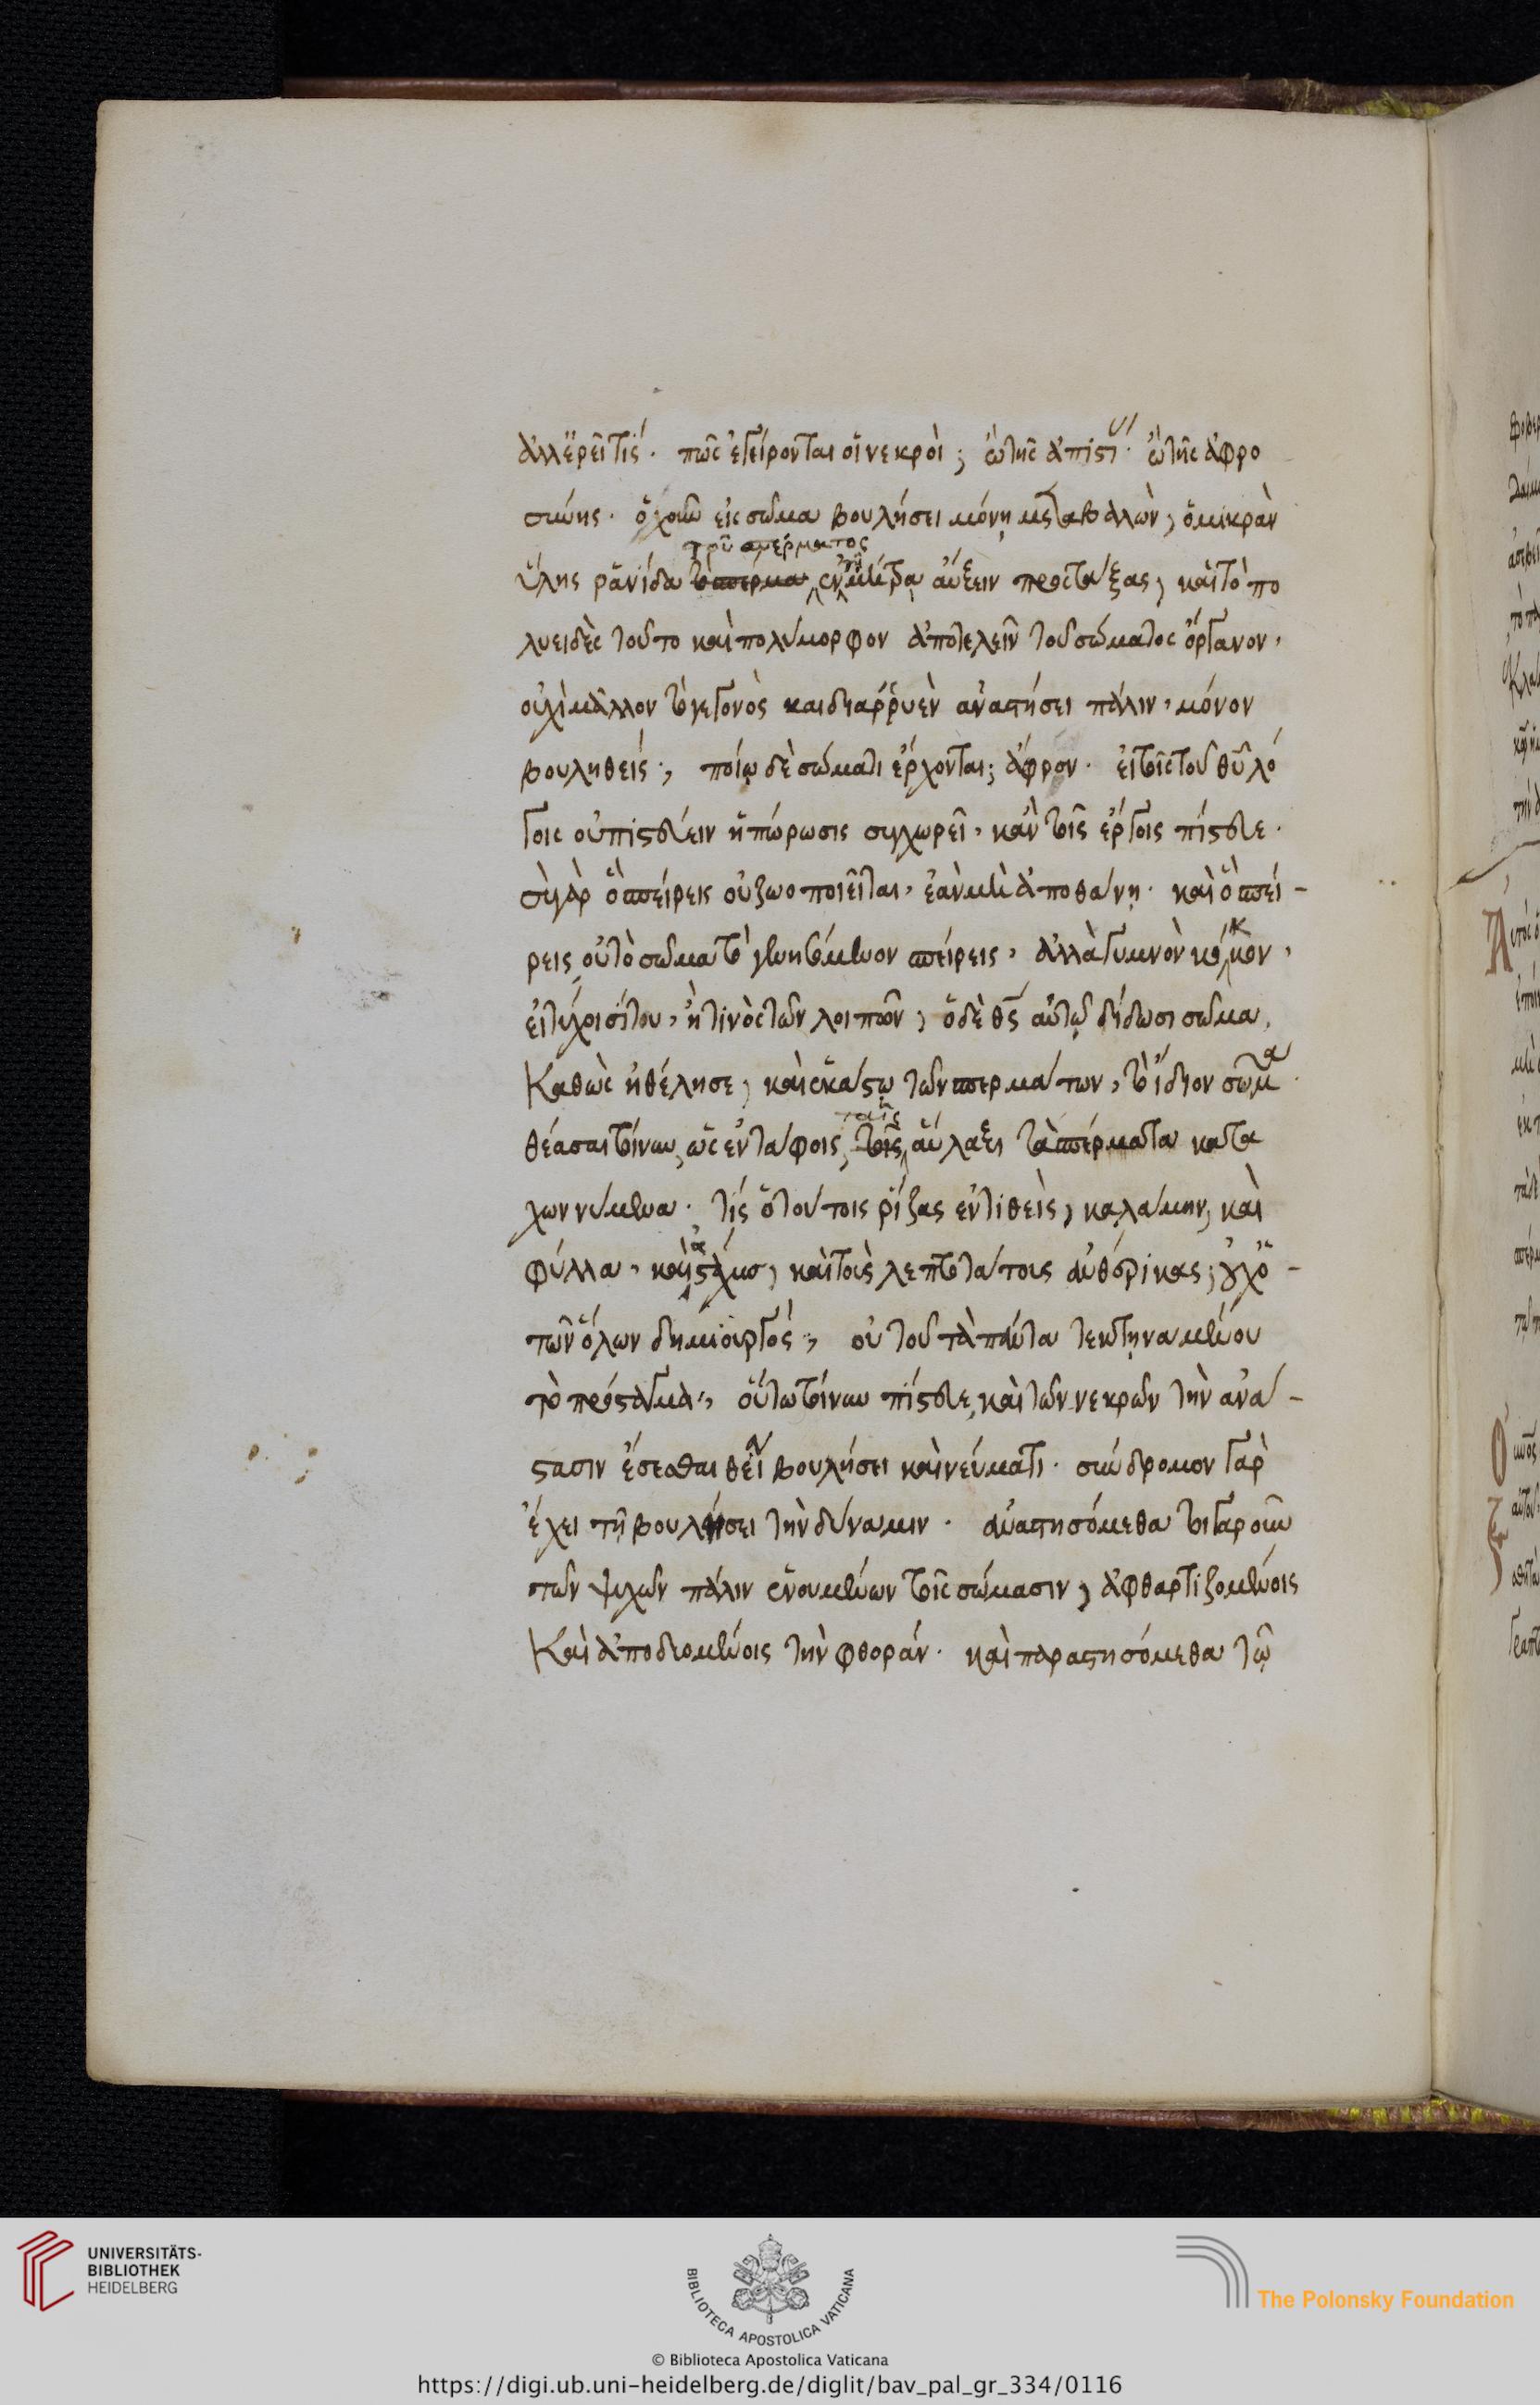 ἀλλ' ἐρεῖ τίς· πῶς ἐγείρονται οἱ νεκροὶ; ὢ τῆς ἀπιστί· ὢ τῆς ἀφρο
σύνης· ὁ χοῦν εἰς σῶμα βουλήσει μόνῃ μεταβαλὼν, ὁ μικρὰν
τοῦ σπέρματος
ὕλης ῥανίδα τὸ σπέρμα ἐν τῇ μήτρᾳ αὔξειν προστάξας, καὶ τὸ πο
λυειδὲς τοῦτο καὶ πολύμορφον ἀποτελεῖν τοῦ σώματος ὄργανον,
οὐχὶ μᾶλλον τὸ γεγονὸς καὶ διαρρυὲν ἀναστήσει πάλιν, μόνον
βουληθείς; ποίῳ δὲ σώματι ἔρχονται; ἄφρον· εἰ τοῖς τοῦ θῦ λό
γοις οὐ πιστεύειν ἡ πώρωσις συγχωρεῖ, κἂν τοῖς ἔργοις πίστευε·
σὺ γὰρ ὃ σπείρεις οὐ ζωοποιεῖται, ἐὰν μὴ ἀποθάνῃ· καὶ ὃ σπεί-
ρεις, οὐ τὸ σῶμα τὸ γενησόμενον σπείρεις, ἀλλὰ γυμνὸν κόκκον,
εἰ τύχοι σίτου, ἢ τινὸς τῶν λοιπῶν, ὁ δὲ θς αὐτῷ δίδωσι σῶμα,
καθὼς ἠθέλησε, καὶ ἑκάστῳ τῶν σπερμάτων, τὸ ἴδιον σῶμα·
θέασαι τοίνυν, ὡς ἐν τάφοις, τοῖς ταῖς αὔλαξι τὰ σπέρματα κατα
χωννύμενα· τίς ὁ τούτοις ῥίζας ἐντιθεὶς, καλάμην, καὶ
φύλλα, καὶ ἀστάχυας, καὶ τοὺς λεπτοτάτους ἀνθέρικας; οὐχ ὁ-
τῶν ὅλων δημιουργός; οὐ τοῦ τὰ πάντα τεκτηναμένου
τὸ πρόσταγμα; οὕτω τοίνυν πίστευε, καὶ τῶν νεκρῶν τὴν ἀνά-
στασιν ἔσεσθαι θείᾳ βουλήσει καὶ νεύματι· σύνδρομον γὰρ
ἔχει τῇ βουλήσει τὴν δύναμιν· ἀναστησόμεθα τοιγαροῦν
τῶν ψυχῶν πάλιν ἑνουμένων τοῖς σώμασιν, ἀφθαρτιζομένοις
καὶ ἀποδυομένοις τὴν φθοράν· καὶ παραστησόμεθα τῷ
UNIVERSITÄTS-
BIBLIOTHEK
HEIDELBERG
BIBLIOTECA APOSTOLICA VATICANA
The Polonsky Foundation
© Biblioteca Apostolica Vaticana
https://digi.ub.uni-heidelberg.de/diglit/bav_pal_gr_334/0116